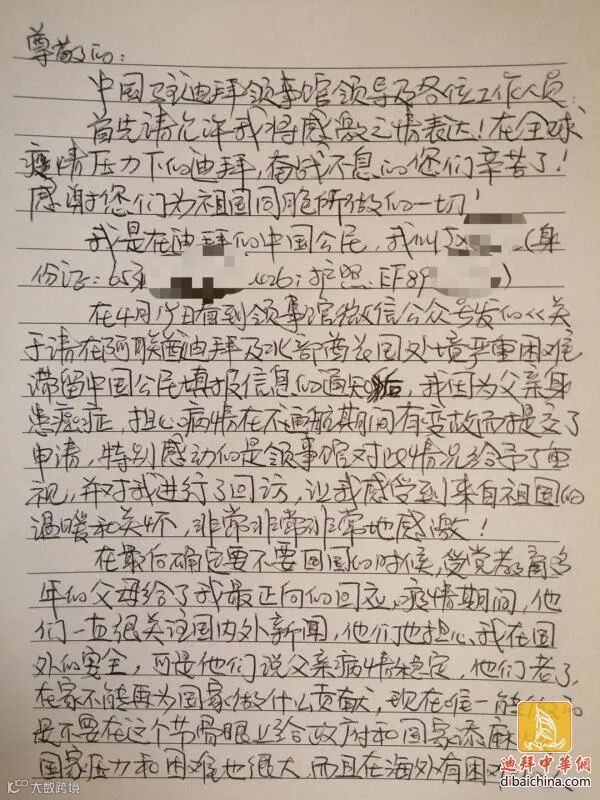 尊敬的：
中国驻迪拜领事馆领导及各位工作人员：
首先请允许我将感激之情表达！在全球
疫情压力下的迪拜，奋战不息的您们辛苦了！
感谢您们为祖国同胞所做的一切！
我是在迪拜的中国公民，我叫（身
份证：65 026；护照：EF89 ）
在4月 日看到领事馆微信公众号发的《关
于请在阿联酋迪拜及北部酋长国处境严重困难
滞留中国公民填报信息的通知》后，我因为父亲身
患癌症，担心病情在不通航期间有变故而提交了
申请，特别感动的是领事馆对此情况给予了重
视，并对我进行了回访，让我感受到来自祖国的
温暖和关怀，非常非常非常地感激！
在最后确定要不要回国的时候，受党教育多
年的父母给了我最正向的回应。疫情期间，他
们一直很关注国内外新闻，他们也担心我在国
外的安全，可是他们说父亲病情稳定，他们老了，
在家不能再为国家做什么贡献，现在唯一能
是不要在这个节骨眼上给政府和国家添麻
国家压力和困难也很大，而且在海外有困
迪拜中華網
dibaichina.com
大数跨境